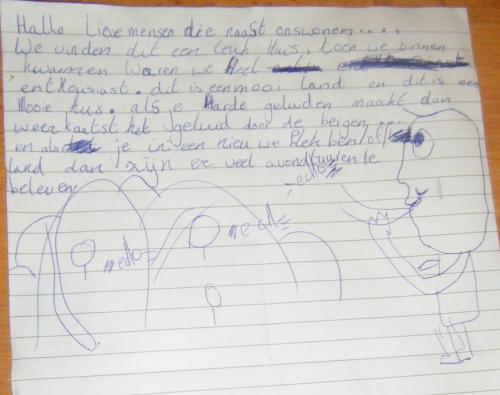 Hallo Lieve mensen die naast ons wonen....
We vinden dit een leuk Huis, toen we binnen
kwamen waren we Heel
enthousiast. dit is een mooi land en dit is een
Mooie huis. als je Harde geluiden maakt dan
weerkaatst het geluid door de bergen....
en als je in een nieuwe Plek ben of
land dan zijn er veel avonturen te
beleven